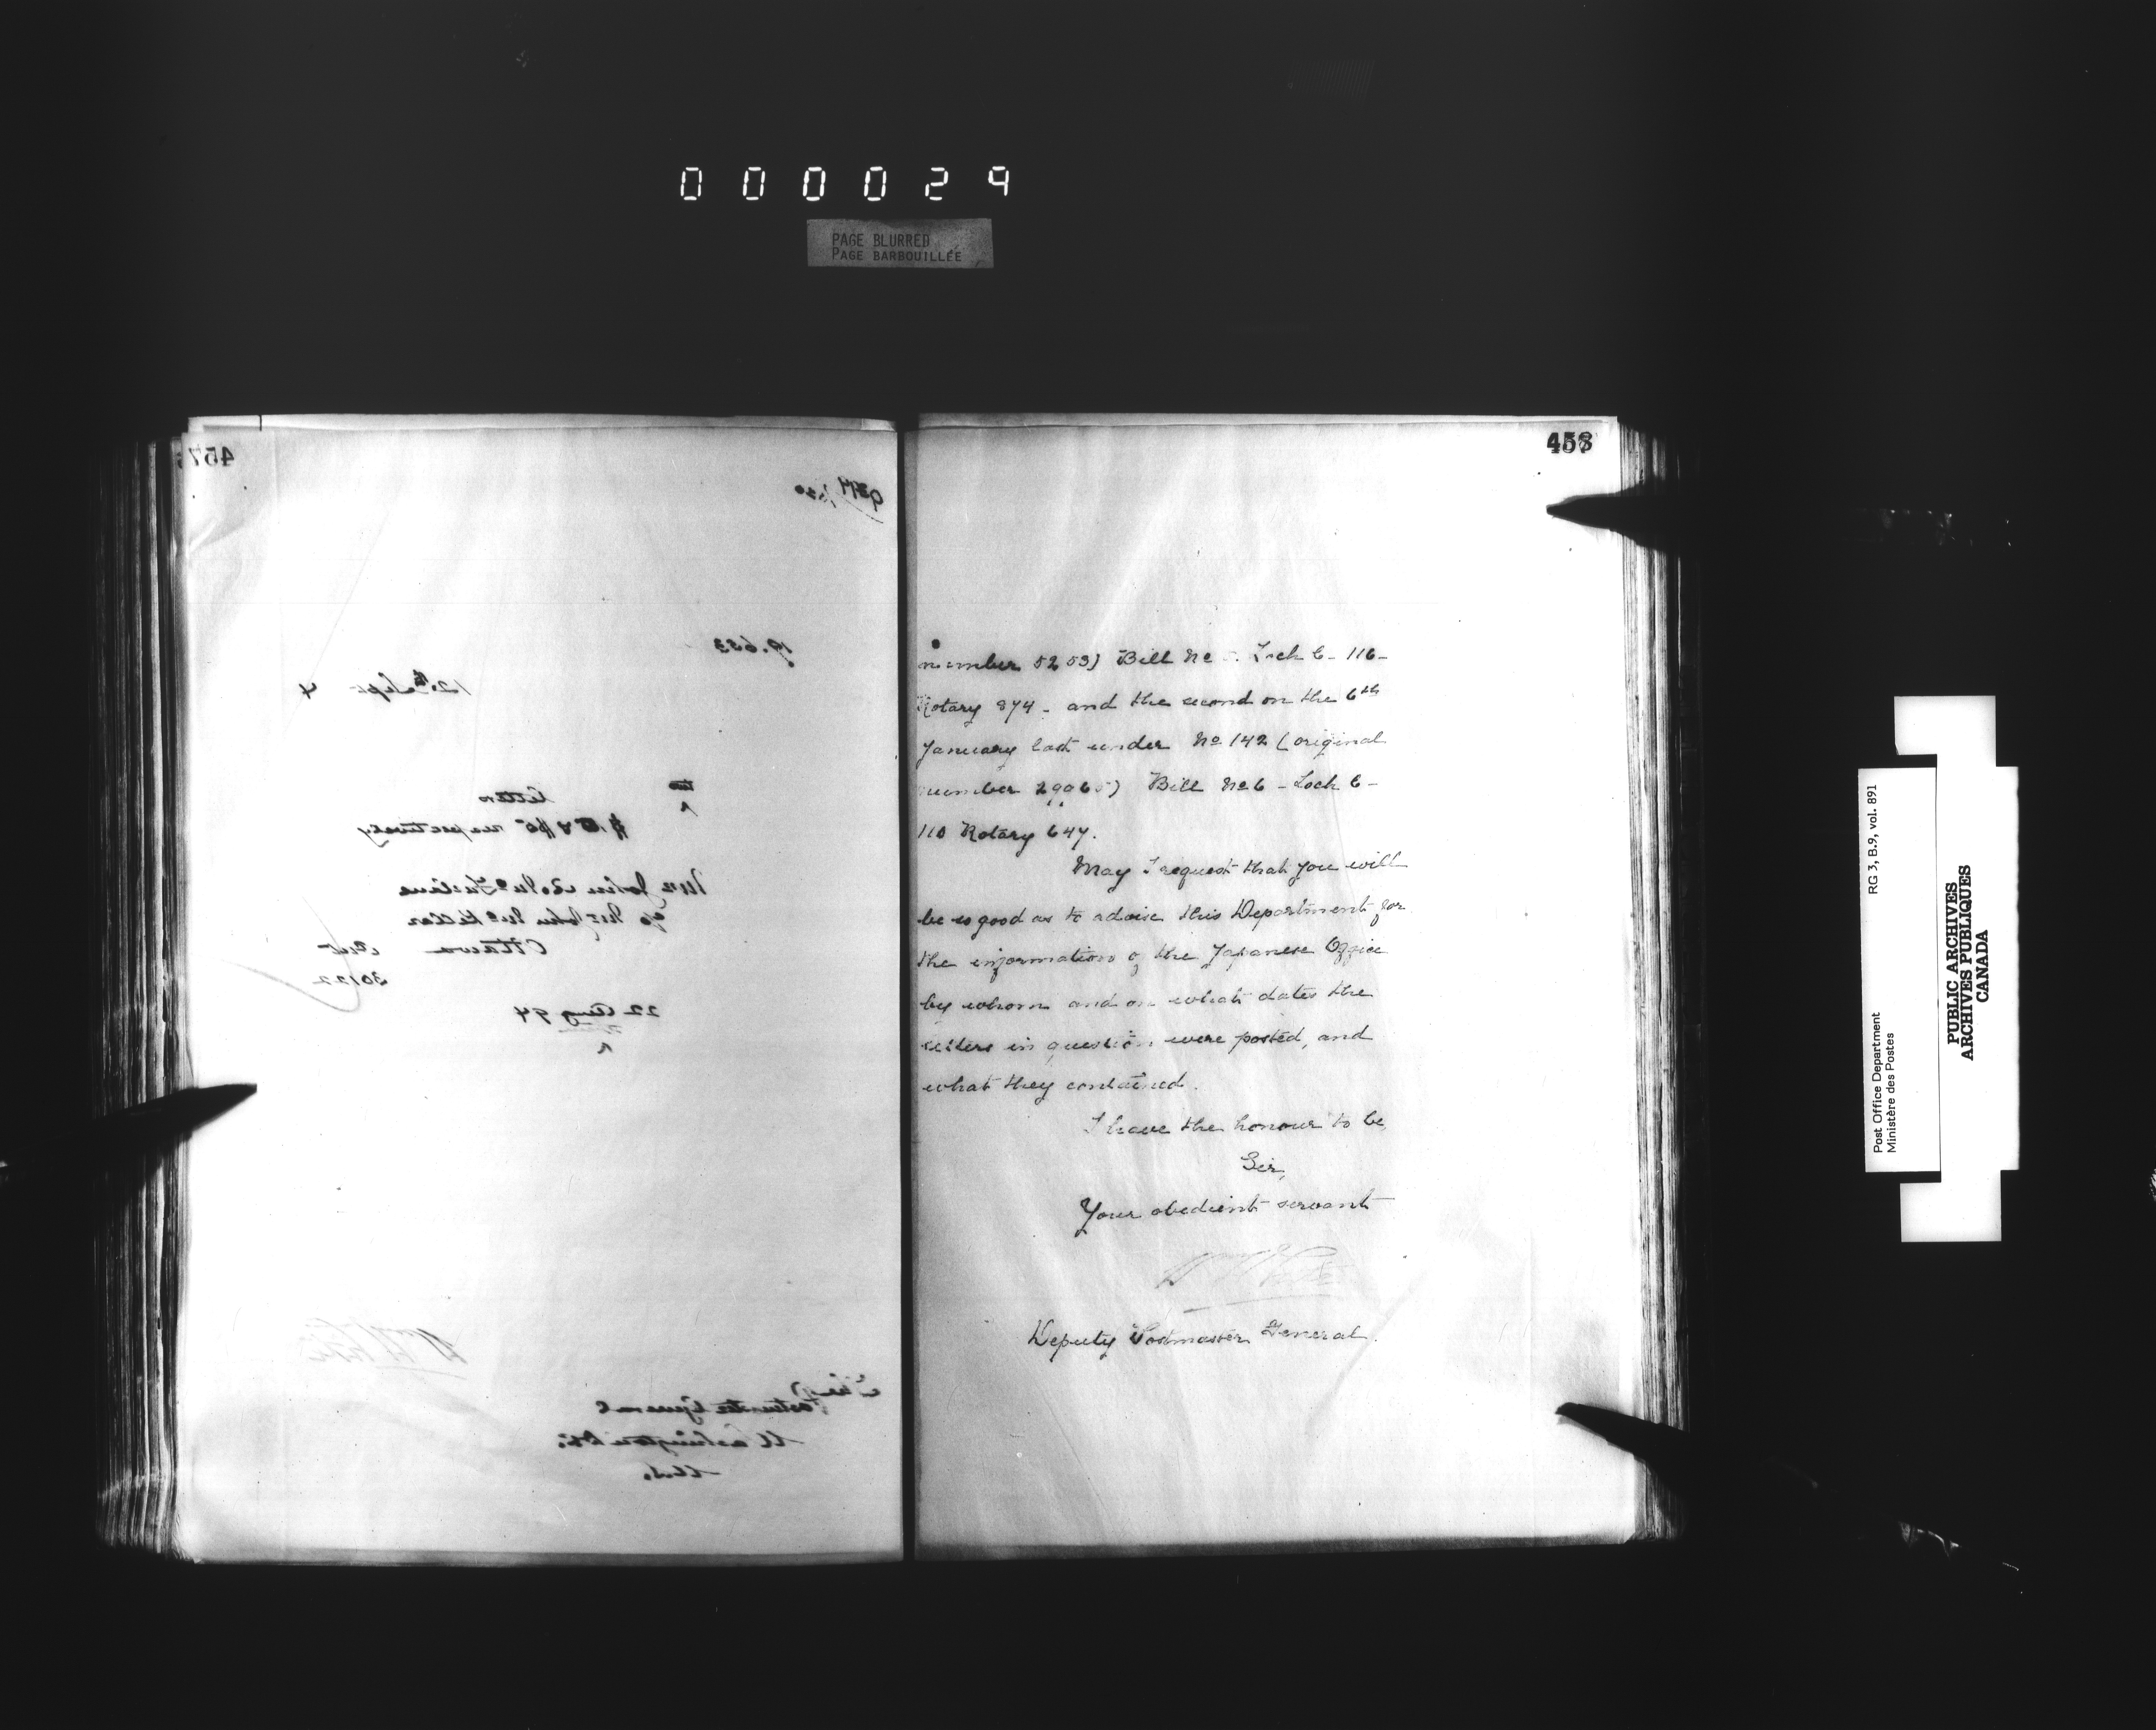 000029
PAGE BLURRED
PAGE BARBOUILLÉE
457
P.653
12th Sept 4
two
letters
respectively
Mrs John
c/o Mr John McKellar
Ottawa
30/22
22 Aug 94
The Postmaster General
Washington D.C.
U.S.
458
number 5253) Bill No Lock 6 - 116 -
Rotary 874 - and the second on the 6th
January last under No 142 (original
number 29065) Bill No 6 - Lock 6 -
110 Rotary 647.
May I request that you will
be so good as to advise this Department for
the information of the Japanese Office
by whom and on what dates the
letters in question were posted, and
what they contained.
I have the honour to be,
Sir,
Your obedient servant
Deputy Postmaster General.
Post Office Department
Ministère des Postes
RG 3, B.9, vol. 891
PUBLIC ARCHIVES
ARCHIVES PUBLIQUES
CANADA